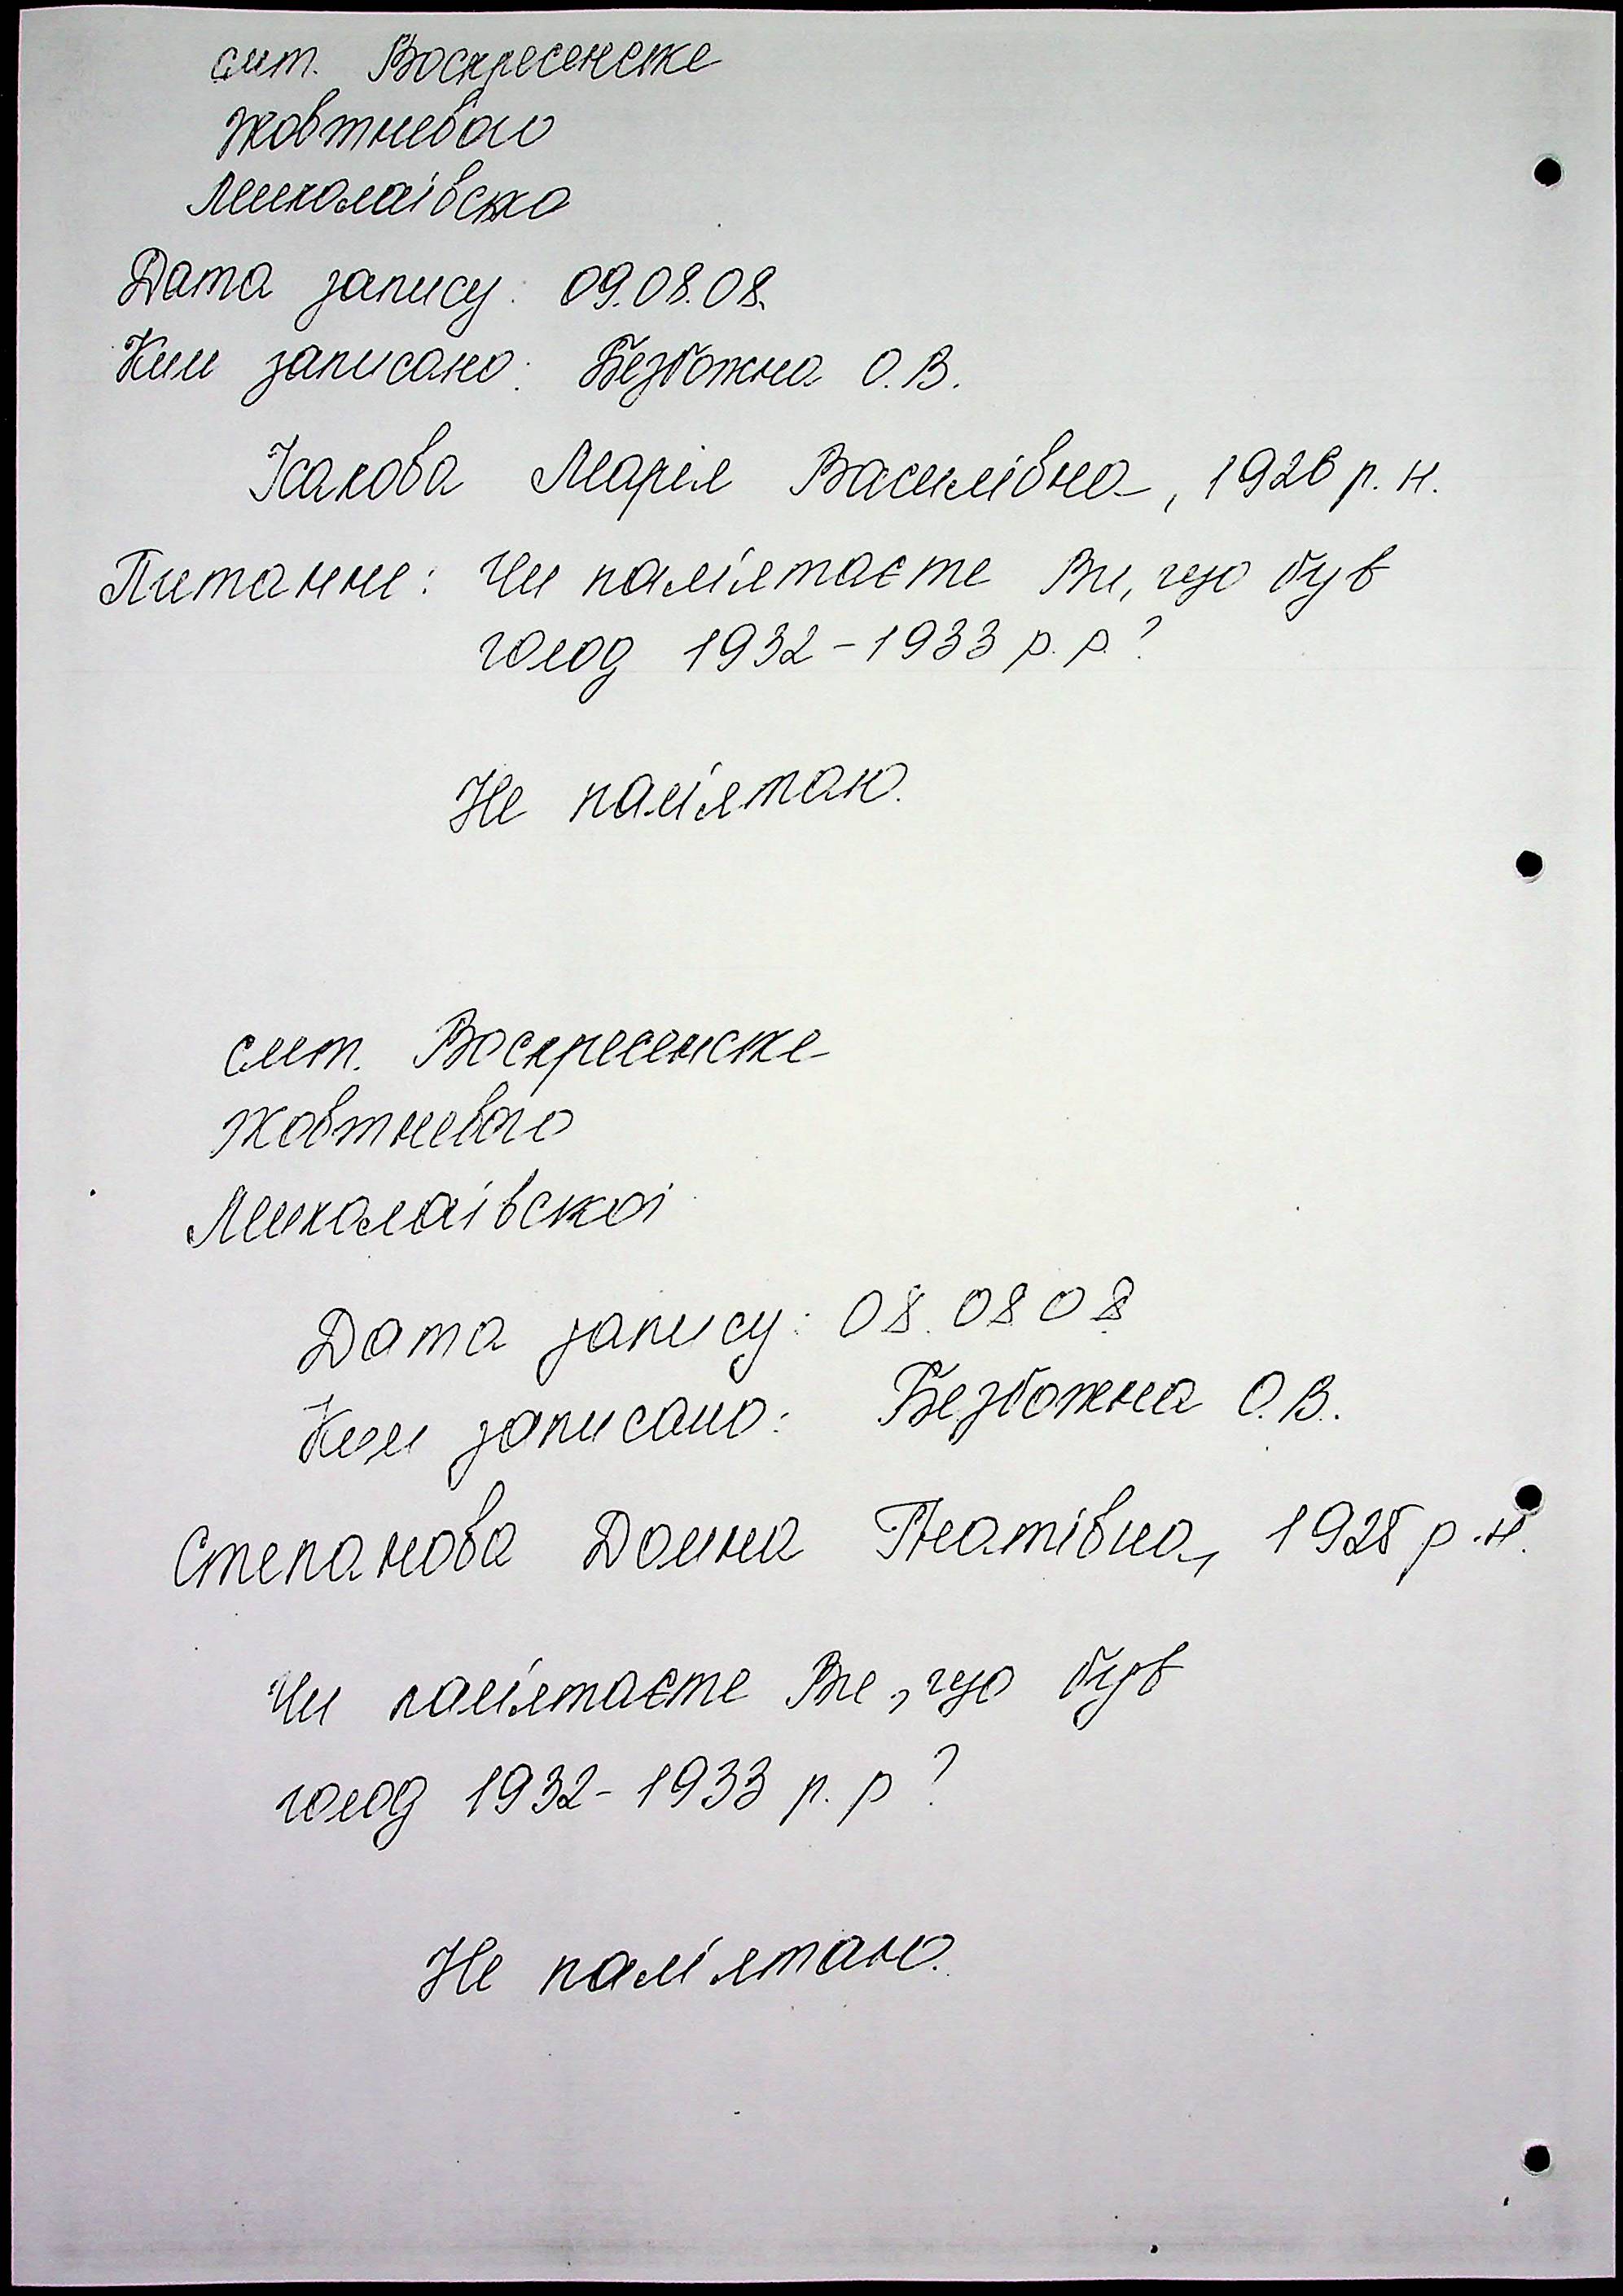 смт. Воскресенське
Жовтневого
Миколаївсько
Дата запису: 09.08.08.
Ким записано: Безбожна О.В.
Ісакова Марія Василівна, 1926 р. н.
Питання: Чи пам'ятаєте Ви, що був
голод 1932-1933 р. р.?
Не пам'ятаю.
смт. Воскресенське
Жовтневого
Миколаївської
Дата запису: 08.08 08
Ким записано: Безбожна О.В.
Степанова Домна Гнатівна, 1925 р. н.
Чи пам'ятаєте Ви, що був
голод 1932-1933 р. р?
Не пам'ятаю.